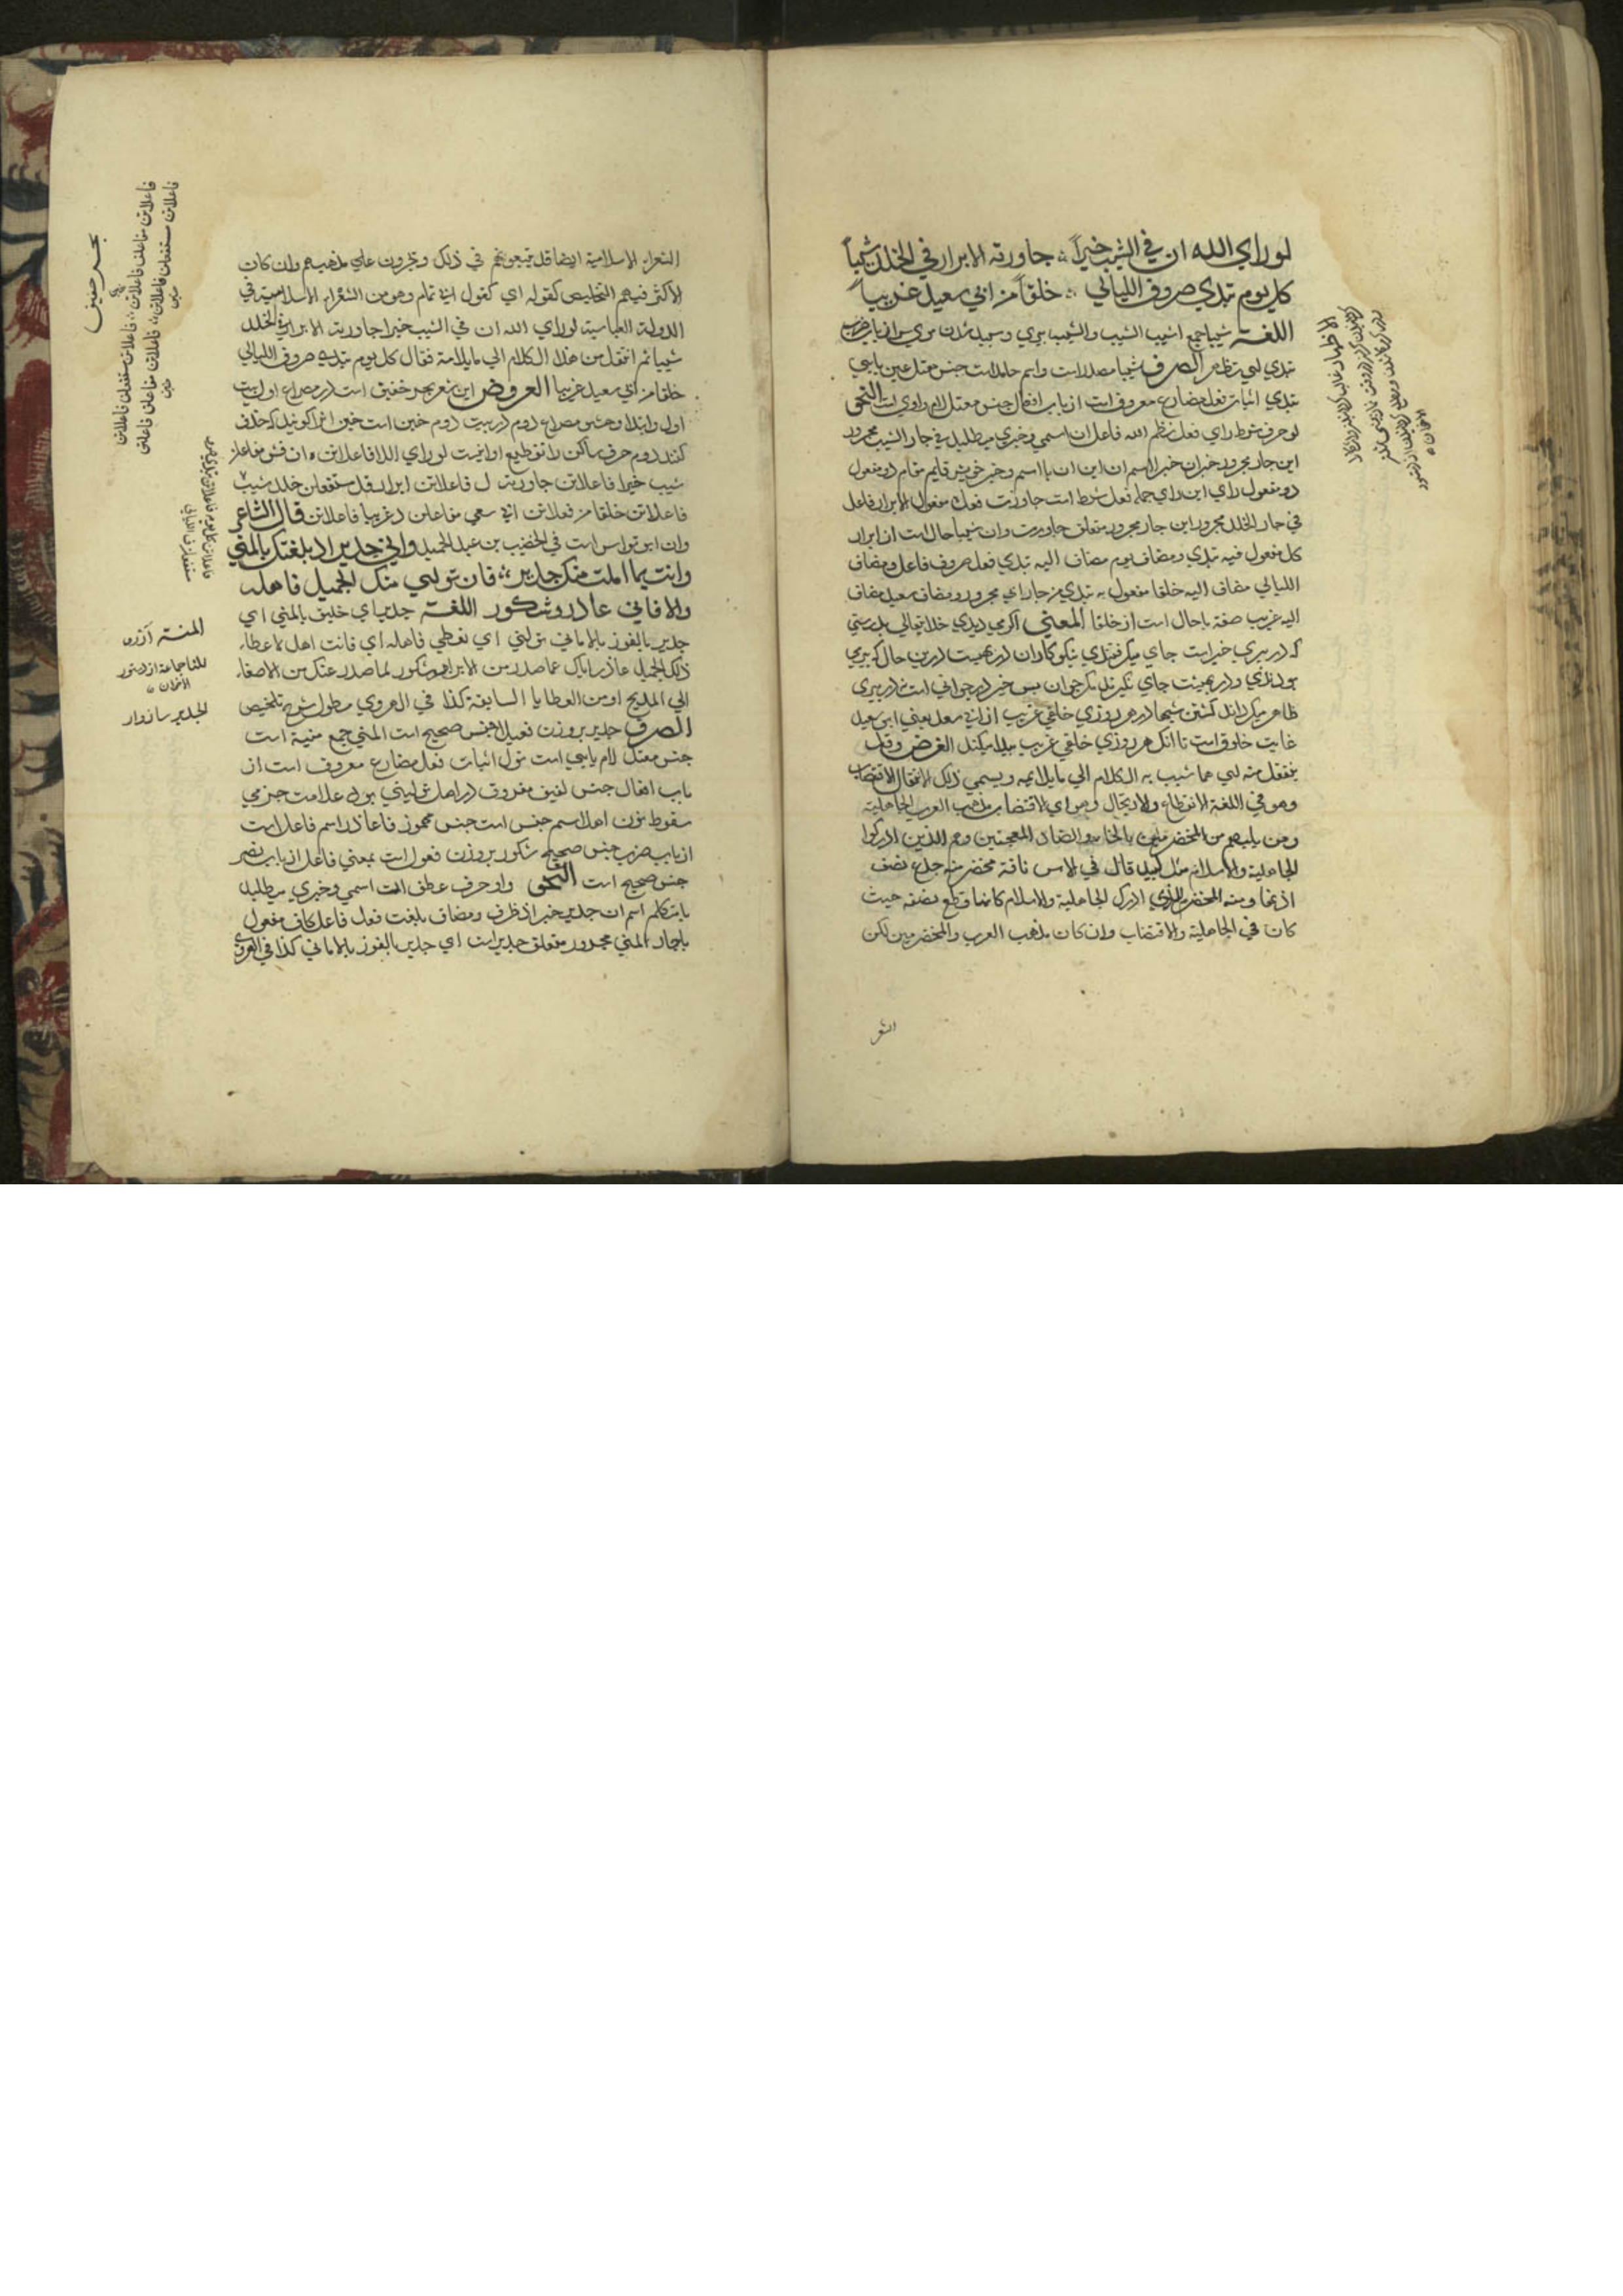 لوراي الله ان في الشيب خيراً جاورته الابرار في الخلد شيباً
كل يوم تبدي صروف الليالي خلقاً من ابي سعيد غريباً
اللغة شيبا جمع اشيب الشيب والشيب
تبدي اي تظهر الصرف شيبا مصدر است واسم جامد است جنس معتل عين يايي
تبدي اثبات فعل مضارع معروف است از باب افعال جنس معتل لام واوي است النحو
لو حرف شرط راي فعل الله فاعل ان اسمي وخبري ميطلبد في جار الشيب مجرور
اين جار مجرور خبر ان خيرا اسم ان اين ان با اسم وخبر خويش قايم مقام دو مفعول
دو مفعول راي اين راي جمله فعل شرط است جاورت فعل ه مفعول الابرار فاعل
في جار الخلد مجرور اين جار مجرور متعلق جاورت وان شيبا حال است از ابرار
كل مفعول فيه تبدي ومضاف يوم مضاف اليه تبدي فعل صروف فاعل ومضاف
الليالي مضاف اليه خلقا مفعول به تبدي من جار ابي مجرور ومضاف سعيد مضاف
اليه غريب صفة يا حال است از خلقا المعني اكر مي ديدي خدا تعالي بدرستي
كه در پيري خير است جاي ميكرفتندي نيكوكاران در بهشت درين حال كه پيري
بودندي ودر بهشت جاي نكيرند مكر جوان پس خير در جواني است نه در پيري
ظاهر ميكرداند كشتن شبها در هر روزي خلقي غريب از ابي سعيد يعني ابي سعيد
غايت خلوق است تا انكه هر روزي خلقي غريب پيدا ميكند الغرض وقد
ينتقل منه اي مما شيب به الكلام الي ما يلايمه ويسمي ذلك الانتقال الاقتضاب
وهو في اللغة الانقطاع والارتجال وهو اي الاقتضاب مذهب العرب الجاهلية
ومن يليهم من المخضرمين بالخاء والضاد المعجمتين وهم الذين ادركوا
الجاهلية والاسلام مثل لبيد قال في الاساس ناقة مخضرمة جدع نصف
اذنها ومنه المخضرم الذي ادرك الجاهلية والاسلام كانما قطع نصفه حيث
كان في الجاهلية والاقتضاب وان كان مذهب العرب والمخضرمين لكن
الشعر
الشعراء الاسلامية ايضا قد يتبعونهم في ذلك ويجرون علي مذهبهم وان كان
الاكثر فيهم التخليص كقوله اي كقول ابي تمام وهو من الشعراء الاسلامية في
الدولة العباسية لوراي الله ان في الشيب خيرا جاورته الابرار في الخلد
شيبا ثم انتقل من هذا الكلام الي ما يلايمه فقال كل يوم تبدي صروف الليالي
خلقا من ابي سعيد غريبا العروض اين شعر بحر خفيف است در مصراع اول بيت
اول وابتدا وحشو مصراع دوم در بيت دوم خبن است خبن انرا كويند كه حذف
كنند دوم حرف ساكن را تقطيع او اينست لوراي اللا فاعلاتن ه ان فش مفاعلن
شيب خيرا فاعلاتن جاورته ل فاعلاتن ابرار فل مستفعلن خلد شيبا
فاعلاتن خلقا من فعلاتن ابي سعي مفاعلن د غريبا فاعلاتن قال الشاعر
وان ابو نواس است في الخصيب بن عبد الحميد واني جدير اذ بلغتك بالمني
وانت بما املت منك جدير فان تولني منك الجميل فاهله
والا فاني عاذر وشكور اللغة جدير اي خليق بالمني اي
جدير بالفوز بالاماني تولني اي تعطي فاهله اي فانت اهل لاعطاء
ذلك الجميل عاذر اياك عما صدر من الابرام وشكور لما صدر عنك من الاصغاء
الي المديح او من العطايا السابقة كذا في الهروي مطول شرح تلخيص
الصرف جدير بر وزن فعيل جنس صحيح است المني جمع منية است
جنس معتل لام يايي است تول اثبات فعل مضارع معروف است از
باب افعال جنس لفيف مفروق در اصل توليني بود علامت جزمي
سقوط نون اهل اسم جنس است جنس مهموز فا عاذر اسم فاعل است
از باب ضرب جنس صحيح شكور بر وزن فعول است بمعني فاعل از باب نصر
جنس صحيح است النحو واو حرف عطف ان اسمي وخبري ميطلبد
يا متكلم اسم ان جدير خبر اذ ظرف ومضاف بلغت فعل فاعل كاف مفعول
با جار المني مجرور متعلق جدير است اي جدير بالفوز بالاماني كذا في الهروي
بحر خفيف
فاعلاتن مفاعلن فاعلاتن فاعلاتن مستفعلن فاعلاتن
فاعلاتن مستفعلن فاعلاتن فاعلاتن مفاعلن فاعلاتن
خبن
المنية آرزو
المنا جماعة از دستور
الاخوان
الجدير سزاوار